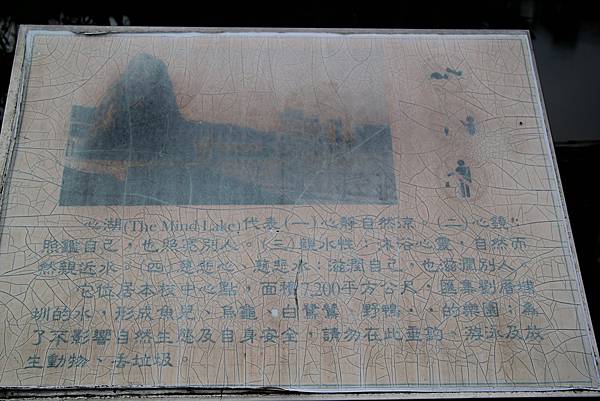 心湖(The Mind Lake)代表(一)心靜自然涼。(二)心鏡:
照鑑自己,也照亮別人。(三)親水性:沐浴心靈,自然而
然親近水。(四)慈悲心、慈悲水:滋潤自己,也滋潤別人。
它位居本校中心點,面積7,200平方公尺,匯集劉厝埤
圳的水,形成魚兒、烏龜、白鷺鷥、野鴨‥的樂園;為
了不影響自然生態及自身安全,請勿在此垂釣、游泳及放
生動物、丟垃圾。